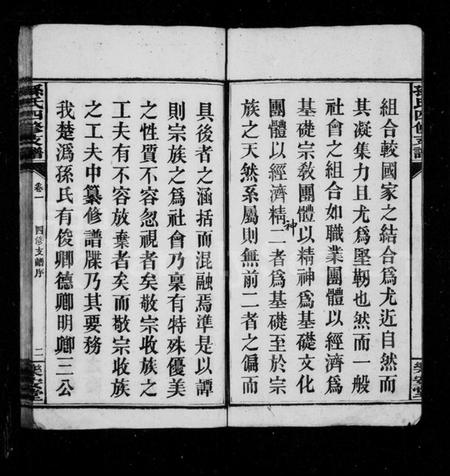 組合較國家之結合爲尤近自然而
其凝集力且尤爲堅韌也然而一般
社會之組合如職業團體以經濟爲
基礎宗敎團體以精神爲基礎文化
團體以經濟精神二者爲基礎至於宗
族之天然系屬則無前二者之偏而
具後者之涵括而混融焉準是以譚
則宗族之爲社會乃稟有特殊優美
之性質不容忽視者矣敬宗收族之
工夫有不容放棄者矣而敬宗收族
之工夫中纂修譜牒乃其要務
我楚潙孫氏有俊卿德卿明卿三公
孫氏四修支譜
卷一
四修支譜序
二
孫氏四修支譜